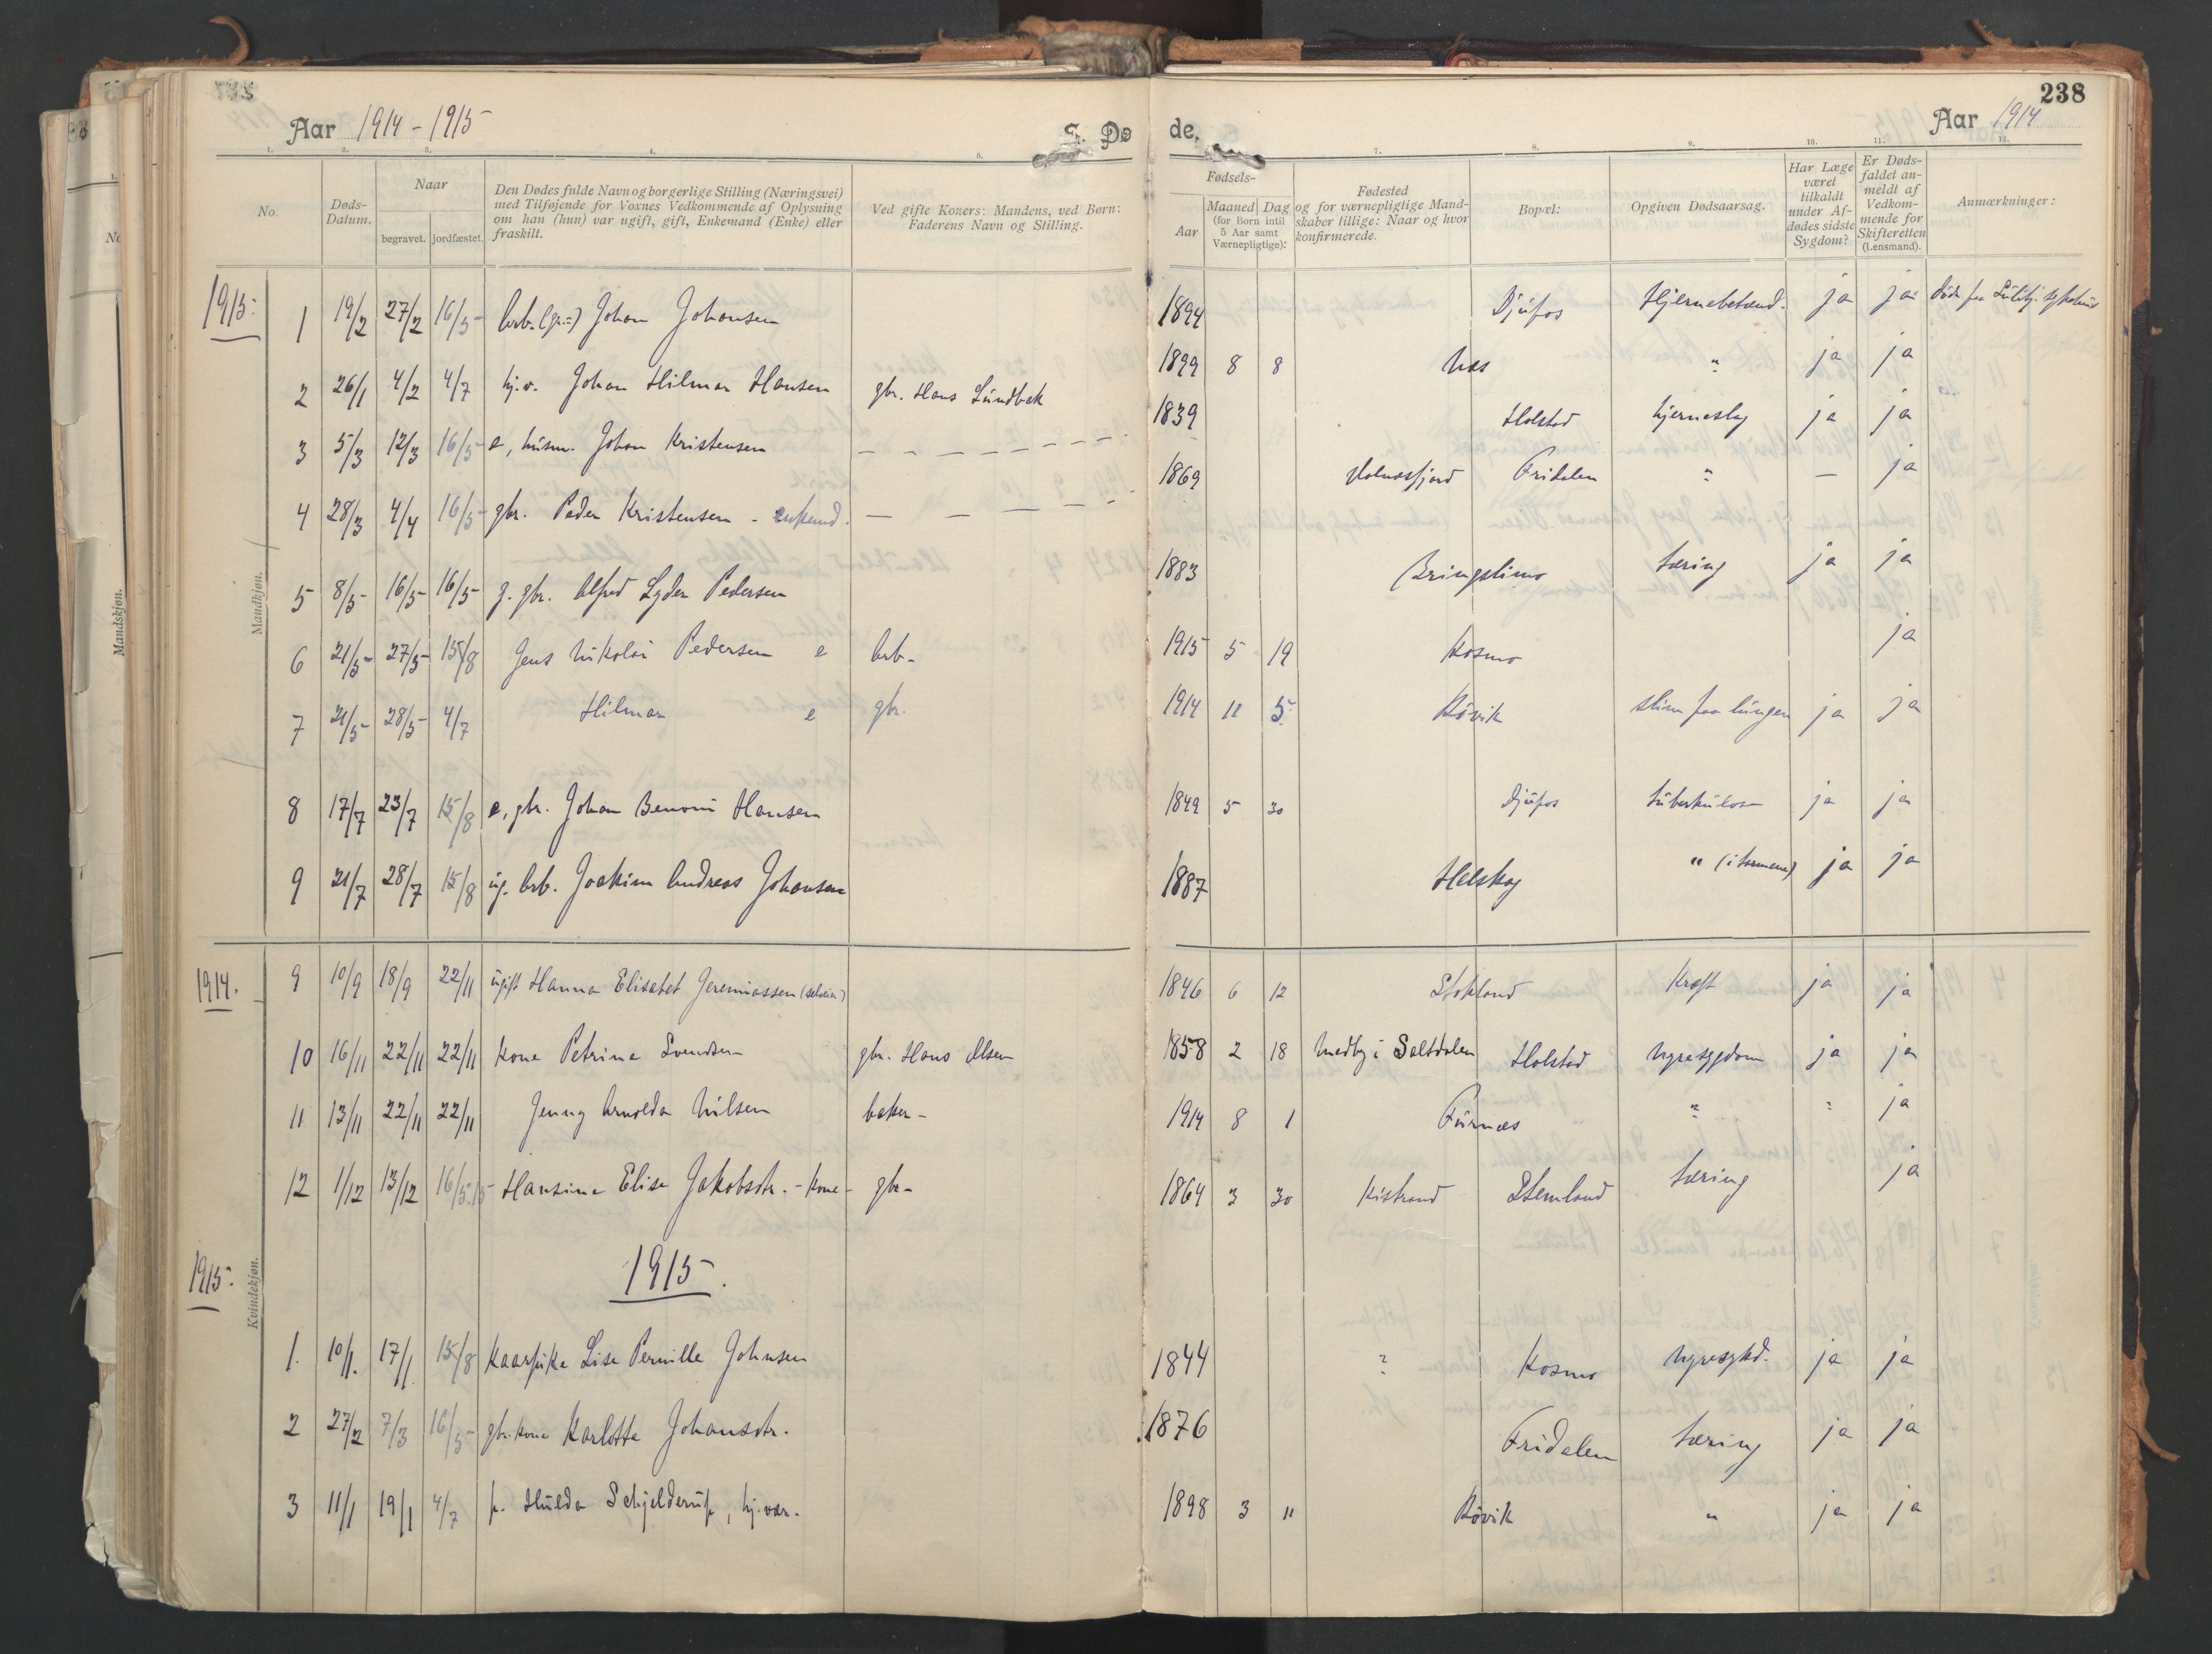 238
Aar 1914-1915
S. Dø de.
Aar 1914
1. 2. 3. 4. 5. 7. 8. 9. 10. 11. 12.
No.
Døds-Datum.
Naar
begravet. jordfæstet.
Den Dødes fulde Navn og borgerlige Stilling (Næringsvei)
med Tilføjende for Voxnes Vedkommende af Oplysning
om han (hun) var ugift, gift, Enkemand (Enke) eller
fraskilt.
Ved gifte Koners: Mandens, ved Børn:
Faderens Navn og Stilling.
Fødsels-
Aar
Maaned Dag
(for Børn intil
5 Aar samt
Værnepligtige):
Fødested
og for værnepligtige Mand-
skaber tillige: Naar og hvor
konfirmerede.
Bopæl:
Opgiven Dødsaarsag.
Har Læge
været
tilkaldt
under Af-
dødes sidste
Sygdom?
Er Døds-
faldet an-
meldt af
Vedkom-
mende for
Skifteretten
(Lensmand).
Anmærkninger:
Mandkjøn.
1915:
1 19/2 27/2 16/5 arb. Johan Johansen 1894 Djupos Hjernebetænd. ja ja
2 26/1 4/2 4/7 hj.v. Johan Hilmar Hansen gbr. Hans Lundbak 1899 8 8 Næs " ja ja
3 5/3 12/3 16/5 e, husm. Johan Kristensen — 1839 Holstad hjerneslag ja ja
4 28/3 4/4 16/5 gbr. Peder Kristensen - enkemd. — 1869 Valnesfjord Fridalen " — ja
5 8/5 16/5 16/5 g. gbr. Alfred Lyder Pedersen 1883 Bringslimo tæring ja ja
6 21/5 27/5 15/8 Jens Nikolai Pedersen e arb- 1915 5 19 Kosmo ja
7 21/5 28/5 4/7 Hilmar e gbr. 1914 11 5 Røvik slim paa lungen ja ja
8 17/7 23/7 15/8 e, gbr. Johan Benoni Hansen 1849 5 30 Djupos tuberkulose ja ja
9 21/7 28/7 15/8 ug. arb. Joakim Andreas Johansen 1887 Helskog " (i tarmene) ja ja
1914.
9 10/9 18/9 22/11 ugift Hanna Elisabet Jeremiassen 1846 6 12 Stokland Kræft ja ja
10 16/11 22/11 22/11 kone Petrine Svendsen gbr. Hans Olsen 1858 2 18 Medby i Saltdalen Holstad nyresygdom ja ja
11 13/11 22/11 22/11 Jenny Arnolda Nilsen baker- 1914 8 1 Furnes " " ja
12 1/12 13/12 16/5.15 Hansine Elise Jakobsdtr. - kone - gbr- 1864 3 30 Kistrand Stemland tæring ja
Kvindekjøn.
1915.
1915.
1. 10/1. 17/1 15/8 Kaarpike Lise Pernille Johnsen 1844 ? Kosmo nyresykd. ja ja
2 27/2 7/3 16/5 gbr.kone Karlotte Johansdtr. 1876 Fridalen tæring ja ja
3 11/1 19/1 4/7 p. Hulda Schjelderup, hj.vær. 1898 3 11 Røvik " ja ja
Mandskjøn.